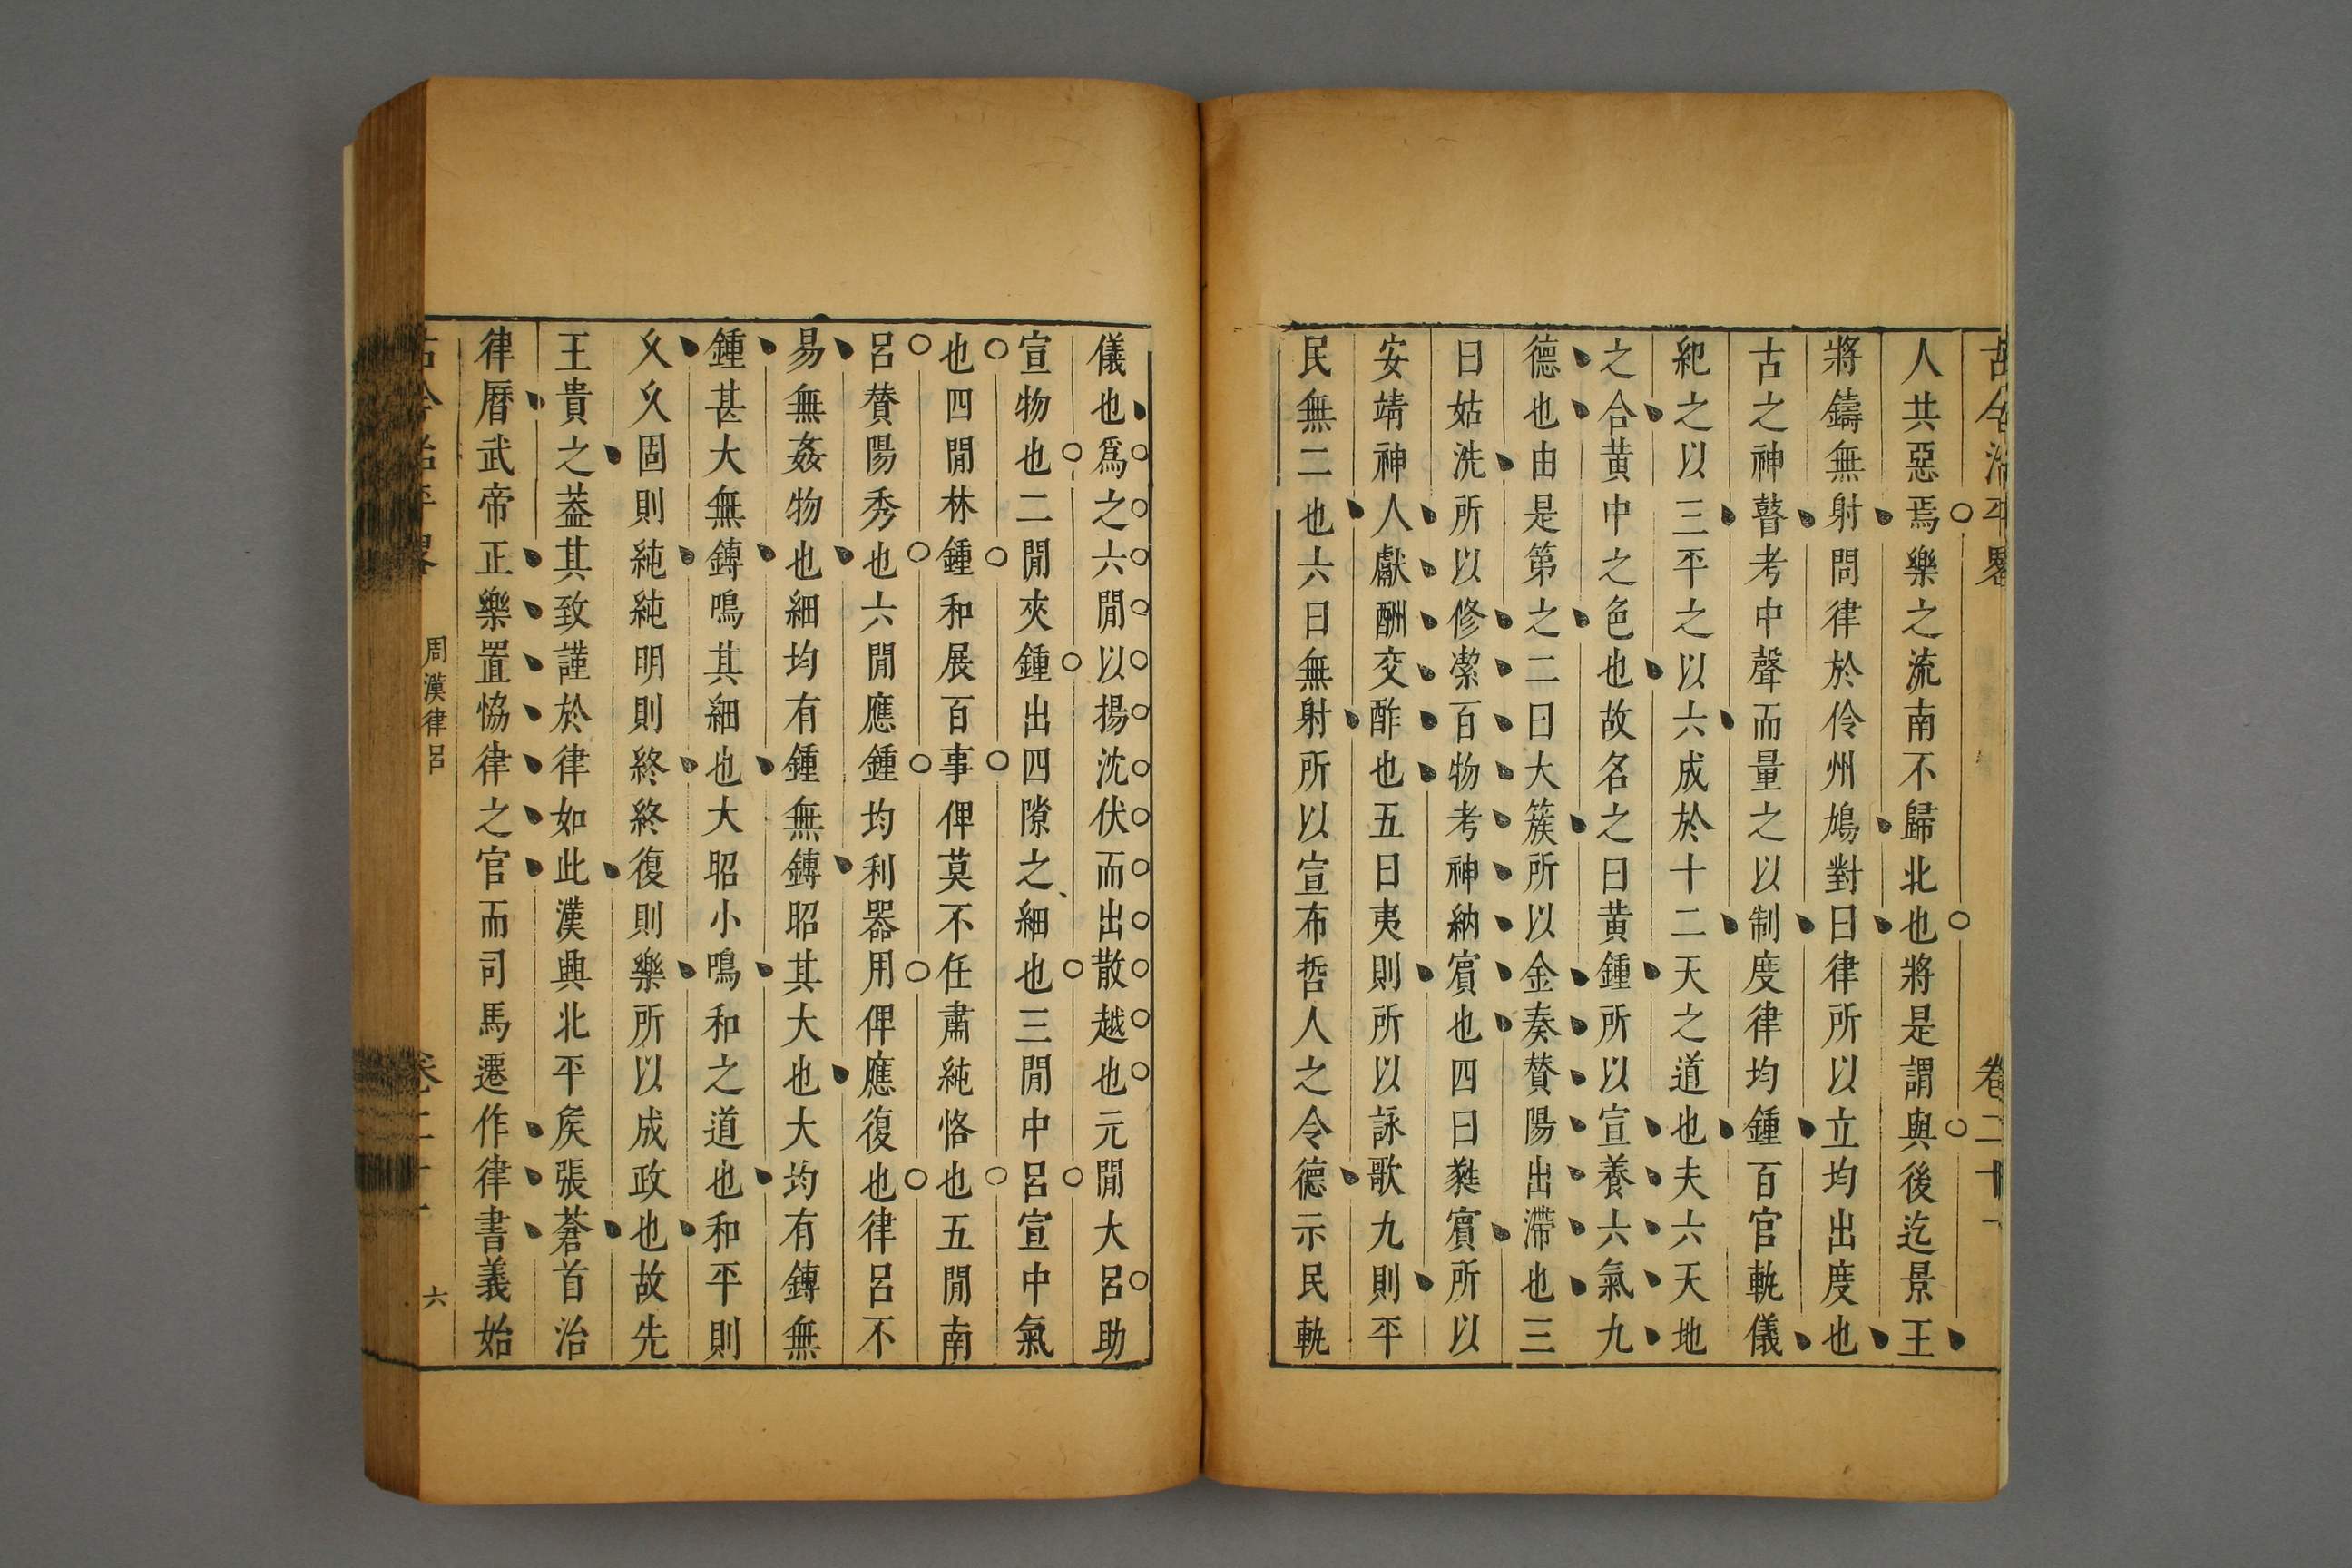 古今治平畧 卷二十一
人共惡焉樂之流南不歸北也將是謂與後迄景王
將鑄無射問律於伶州鳩對曰律所以立均出度也
古之神瞽考中聲而量之以制度律均鍾百官軌儀
紀之以三平之以六成於十二天之道也夫六天地
之合黃中之色也故名之曰黃鍾所以宣養六氣九
德也由是第之二曰大簇所以金奏贊陽出滯也三
曰姑洗所以修潔百物考神納賓也四曰蕤賓所以
安靖神人獻酬交酢也五曰夷則所以詠歌九則平
民無二也六曰無射所以宣布哲人之令德示民軌
儀也爲之六閒以揚沈伏而出散越也元閒大呂助
宣物也二閒夾鍾出四隙之細也三閒中呂宣中氣
也四閒林鍾和展百事俾莫不任肅純恪也五閒南
呂贊陽秀也六閒應鍾均利器用俾應復也律呂不
易無姦物也細均有鍾無鏄昭其大也大均有鏄無
鍾甚大無鏄鳴其細也大昭小鳴和之道也和平則
久久固則純純明則終終復則樂所以成政也故先
王貴之葢其致謹於律如此漢興北平矦張蒼首治
律曆武帝正樂置恊律之官而司馬遷作律書義始
古今治平畧 周漢律呂 卷二十一 六